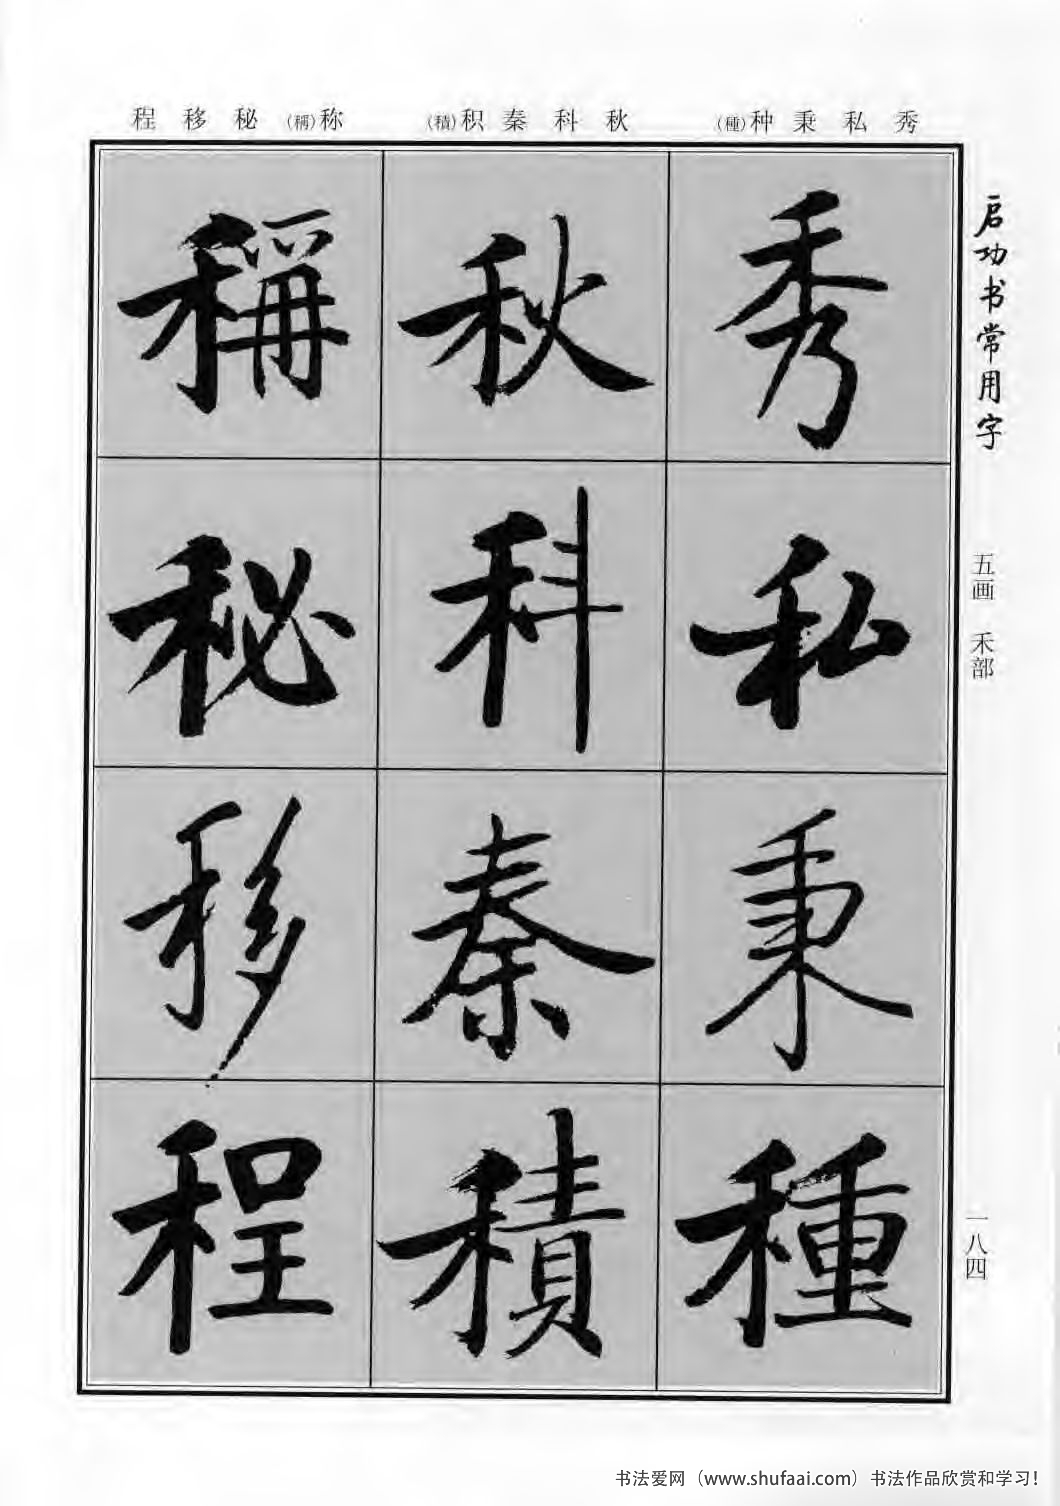 秀私秉种(種)
秋科秦积(積)
称(稱)秘移程
秀私秉種
秋科秦積
稱秘移程
启功书常用字
五画 禾部
一八四
书法爱网（www.shufaai.com）书法作品欣赏和学习!